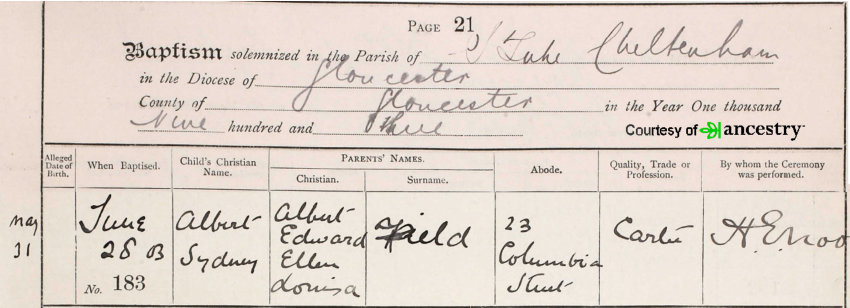 PAGE 21
Baptism solemnized in the Parish of St Luke Cheltenham
in the Diocese of Gloucester
County of Gloucester in the Year One thousand
Nine hundred and Three
Courtesy of ancestry
Alleged Date of Birth.
When Baptised.
Child's Christian Name.
PARENTS' NAMES.
Christian.
Surname.
Abode.
Quality, Trade or Profession.
By whom the Ceremony was performed.
May
31
June
28 03
No. 183
Albert
Sydney
Albert
Edward
Ellen
Louisa
Field
23
Columbia
Street
Carter
H. E.